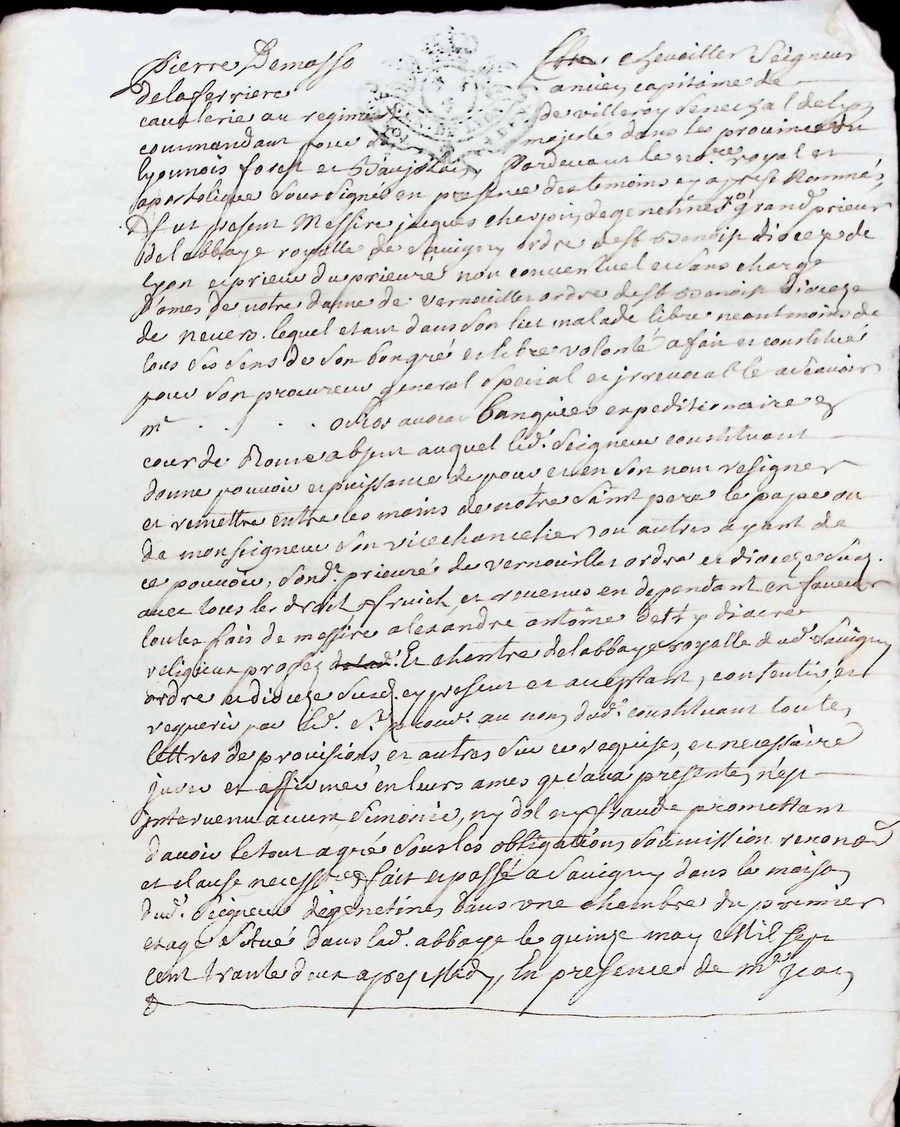 Pierre Demasso chevailler Seigneur
delaferriere ancien capitaine de
cavalerie au regime de villeroy Senechal de Lyon
commandant pour majesté dans les provinces du
lyonnois forest et Baujolais, Pardevant le no.re royal et
apostolique soussigné en presence des temoins cy apres Nommés,
fut present Messire jacques de genetines grand prieur
de labbaye royalle de Savigny ordre de st Benoist dioceze de
Lyon et prieur du prieuré non conventuel et sans charge
Dames de notre dame de vernouillet ordre de st Benoist Dioceze
de nevers. lequel etant dans son lict malade libre neantmoins de
tous ses sens de son bon gré et libre volonté a fait et constitué
pour son procureur general special et irrevocable a scavoir
m.e . . . . banquier expeditionaire en
cour de Rome absent auquel led. Seigneur constituant
donne pouvoir et puissance de pour et en son nom resigner
et remettre entre les mains de notre saint pere le pape ou
de monseigneur son vice chancelier ou autres ayant de
ce pouvoir, sond. prieuré de vernouillet ordre et dioceze susd.
avec tous les droit fruict, et revenus en dependant en faveur
toutes fais de messire alexandre antoine diacre
religieux profez de lad. Et chantre de labbaye royalle dud. Savigny
ordre et dioceze susd. cy present et acceptant, consentir, et
requerir par led. Sr. procur. au nom dud. constituant toute,
lettres de provisions et autres sur ce requises, et necessaire
jurer et affirmer en leurs ames qu'aux presente, n'est
intervenu aucun simonie, ny dol ny fraude promettant
davoir le tout agré sous les obligations soumission renona.on
et clause necessaire fait et passé a Savigny dans la maison
dud. Seigneur degenetines dans une chembre du premier
etage situé dans lad. abbaye le quinze may Mil sept
cent trante deux apres Midy, En presence de m.e Jean